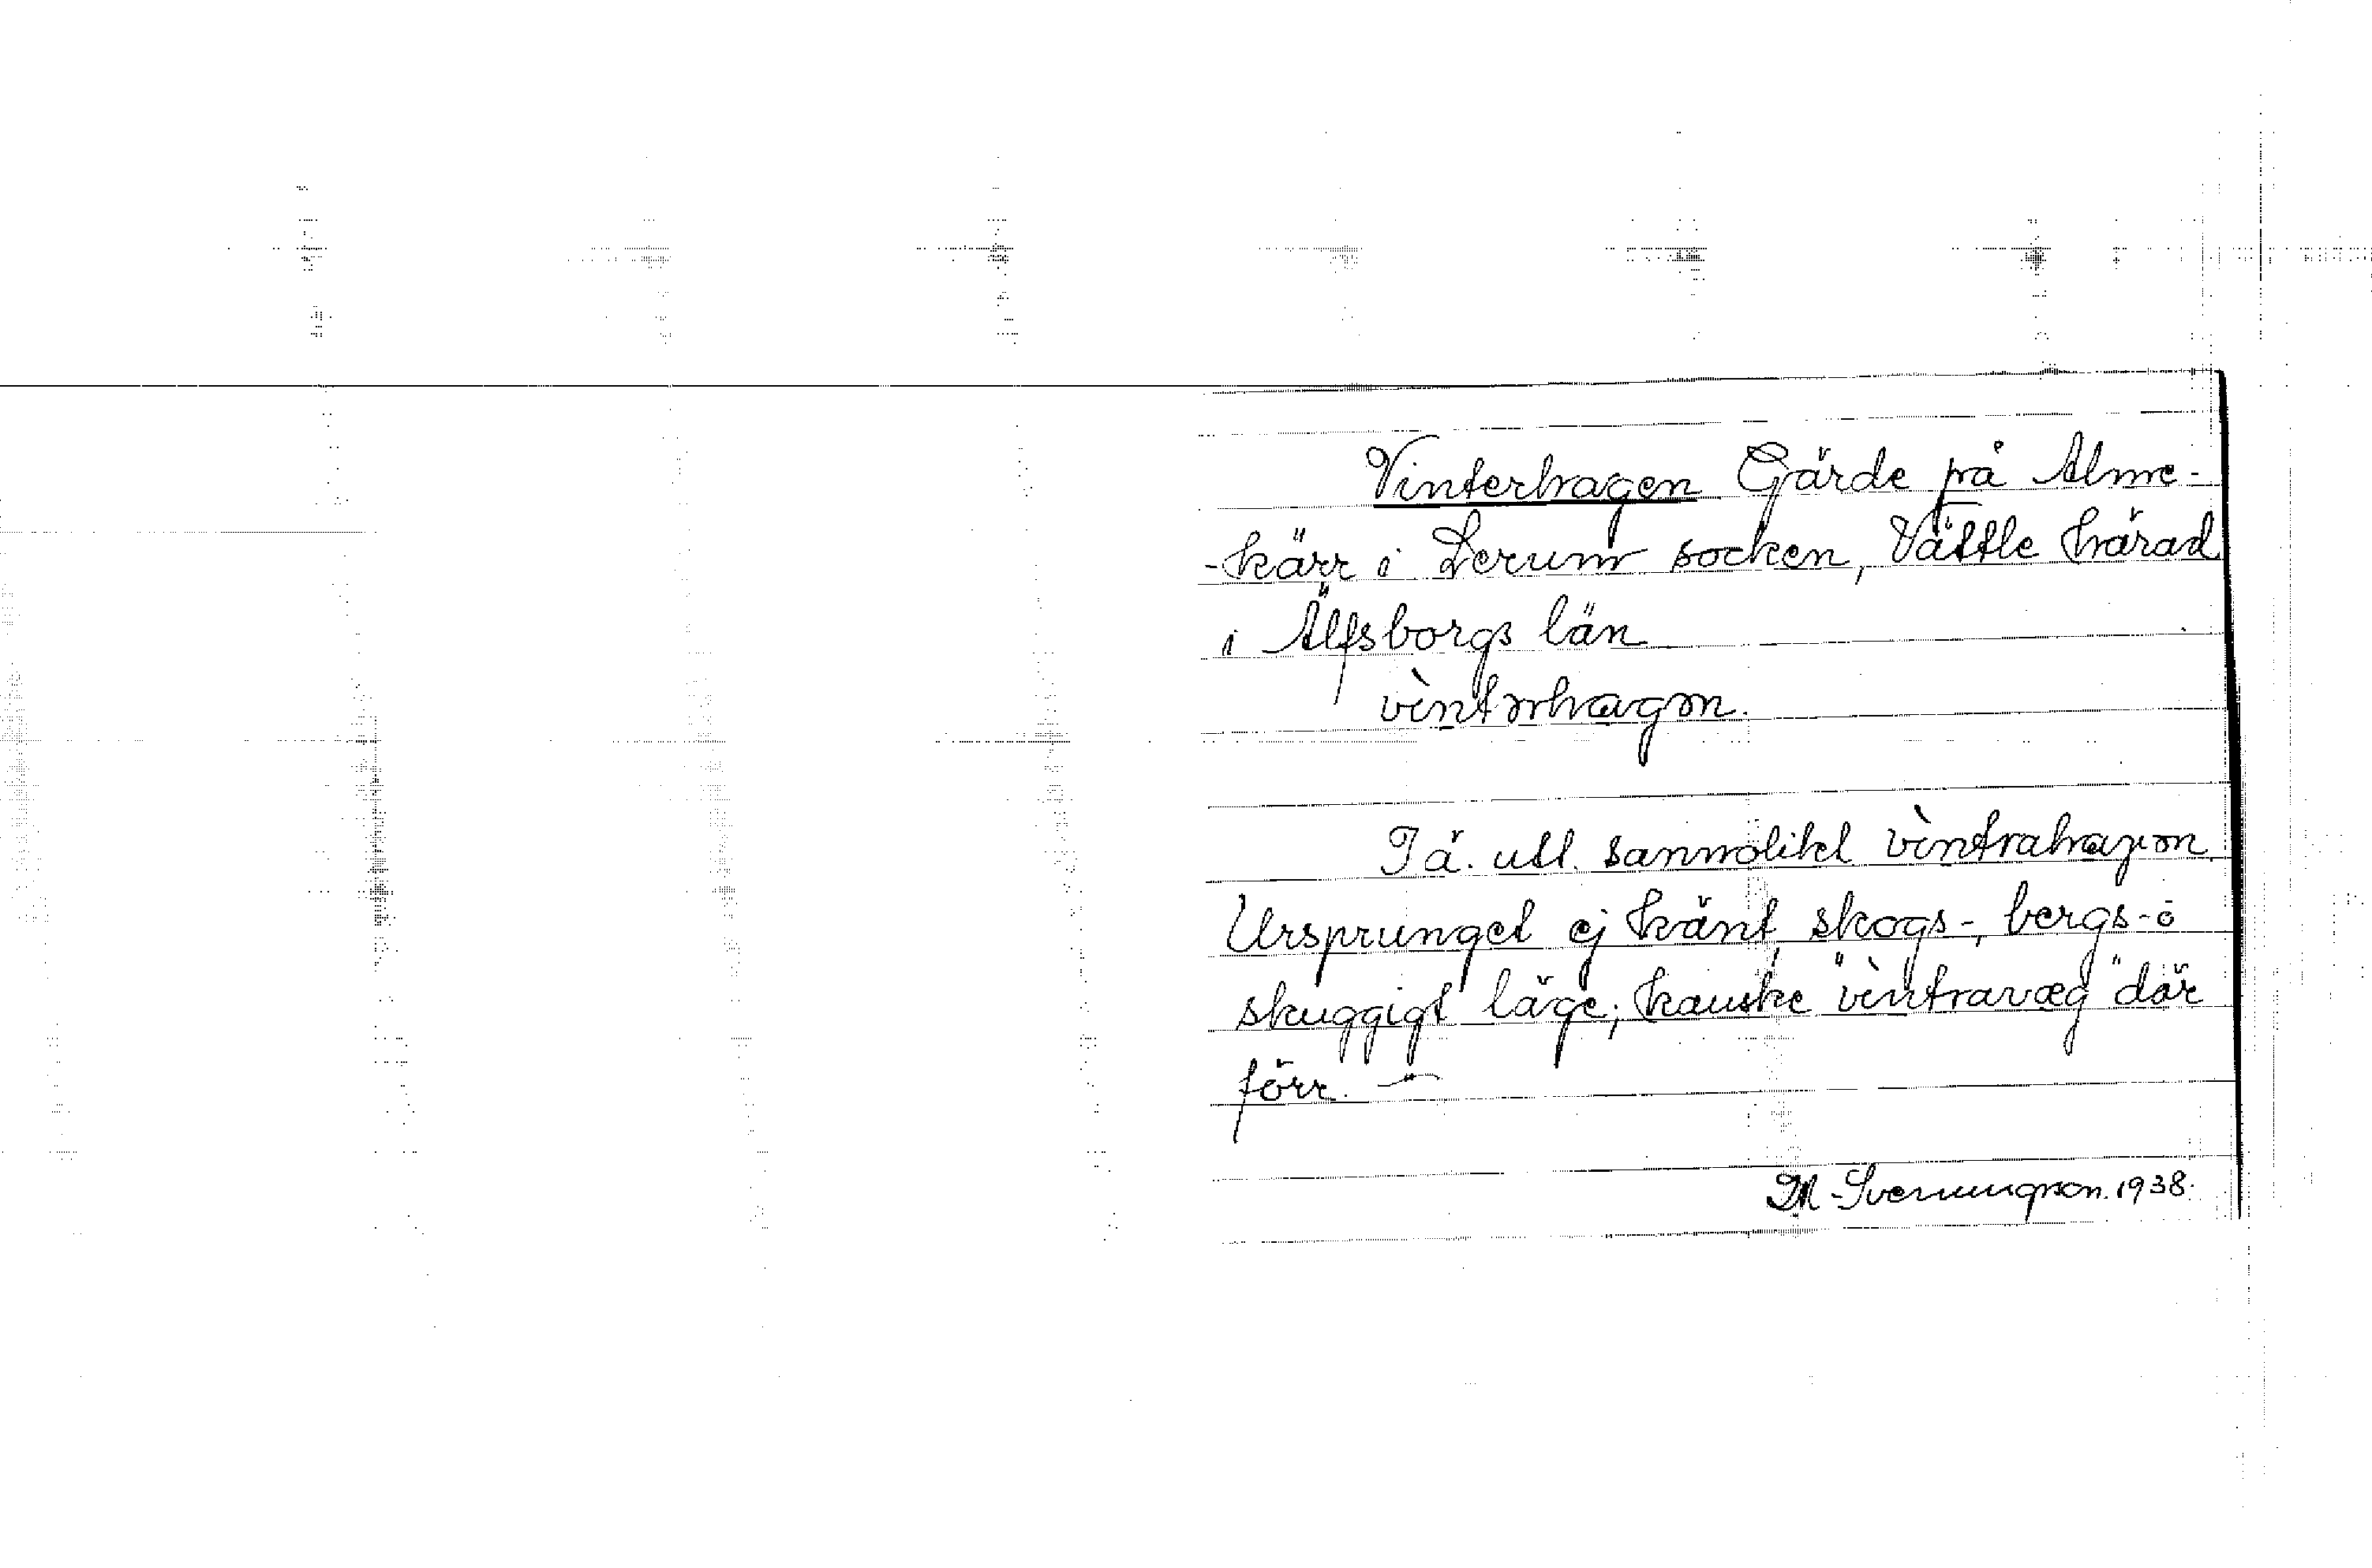 Vinterhagen Gärde på Alme-
-kärr i Lerum socken, Vättle härad
i Älfsborgs län
vìntərhagən.
I ä. utt. sannolikt vìntrahagən.
Ursprunget ej känt, skogs-, bergs- o
skuggigt läge; kanske "vìntravæg" där
förr. —
M. Svenungson. 1938.